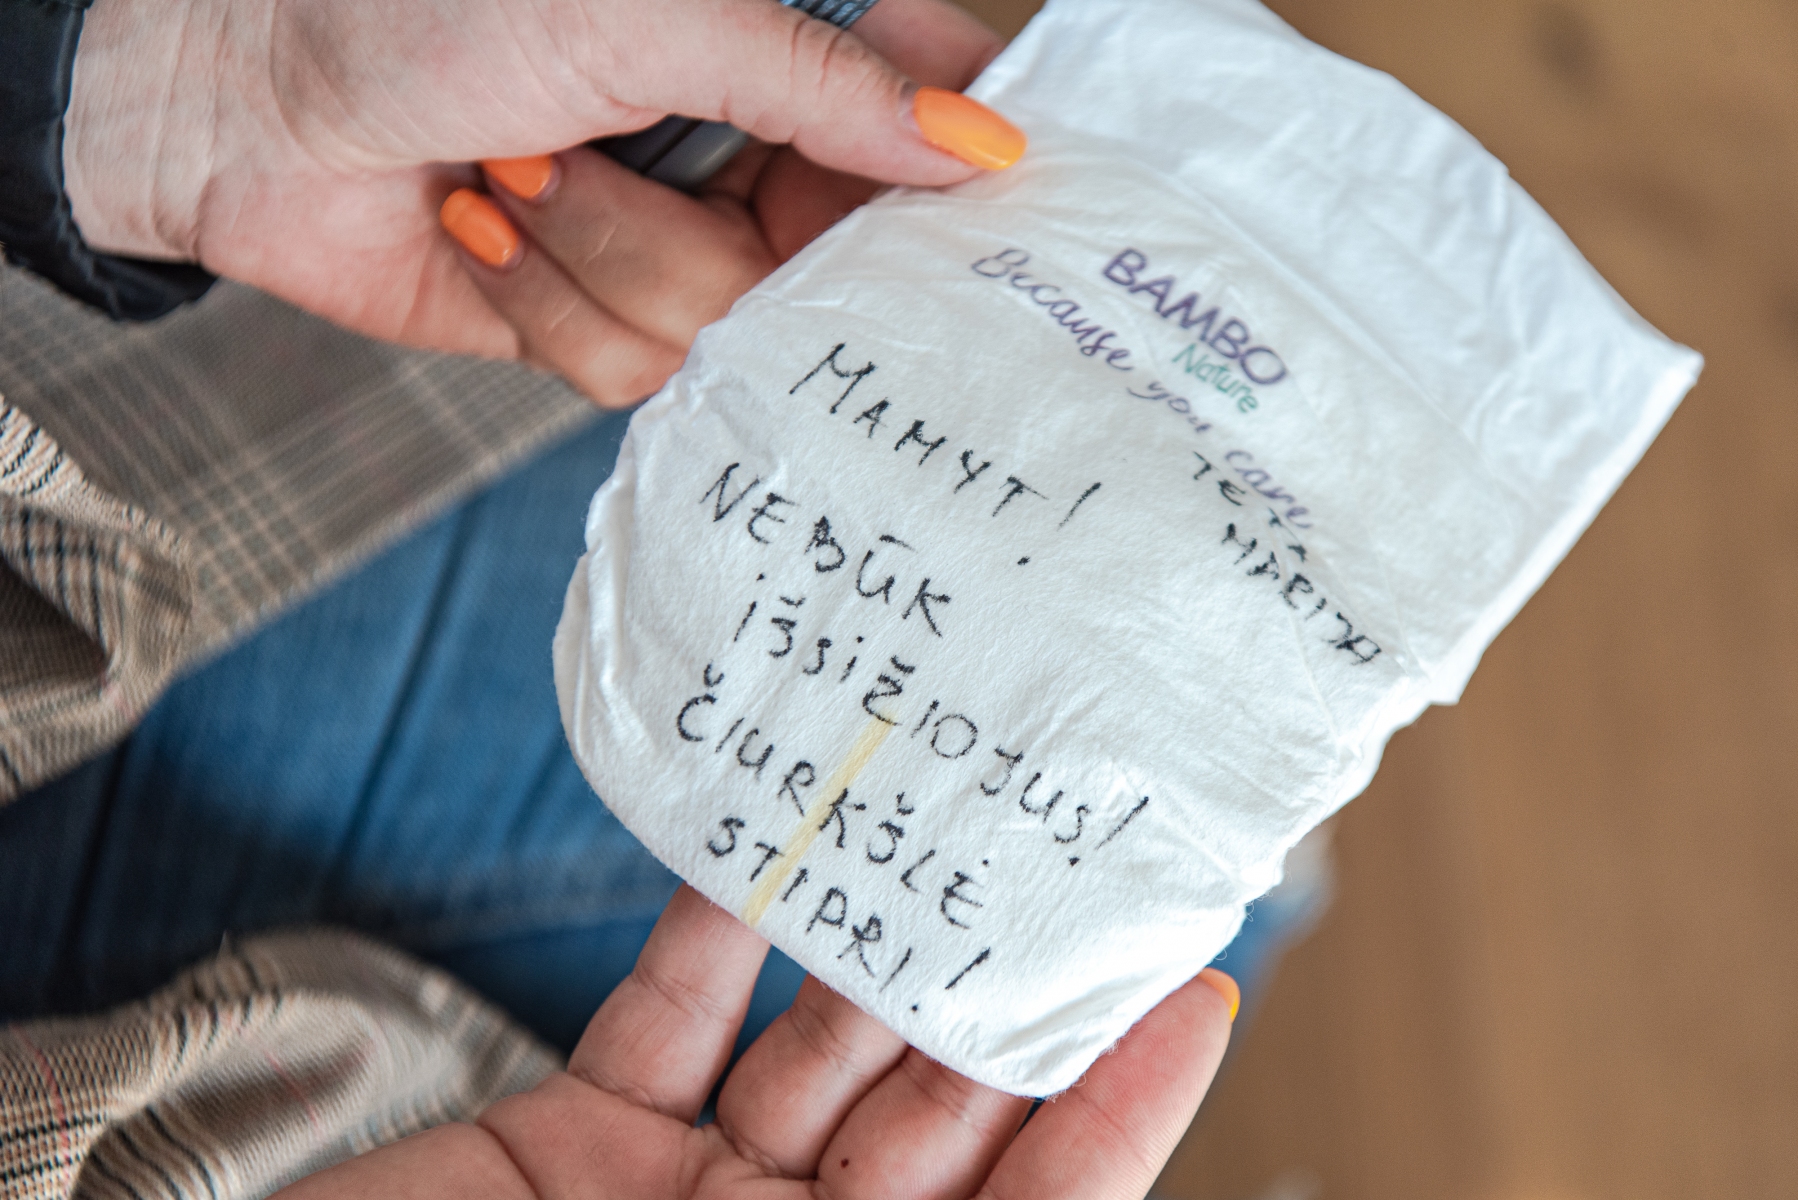 BAMBO
Nature
Because you care
MAMYT!
NEBŪK
IŠSIŽIOJUS!
ČIURKŠLĖ
STIPRI!
TETA
MARIJA